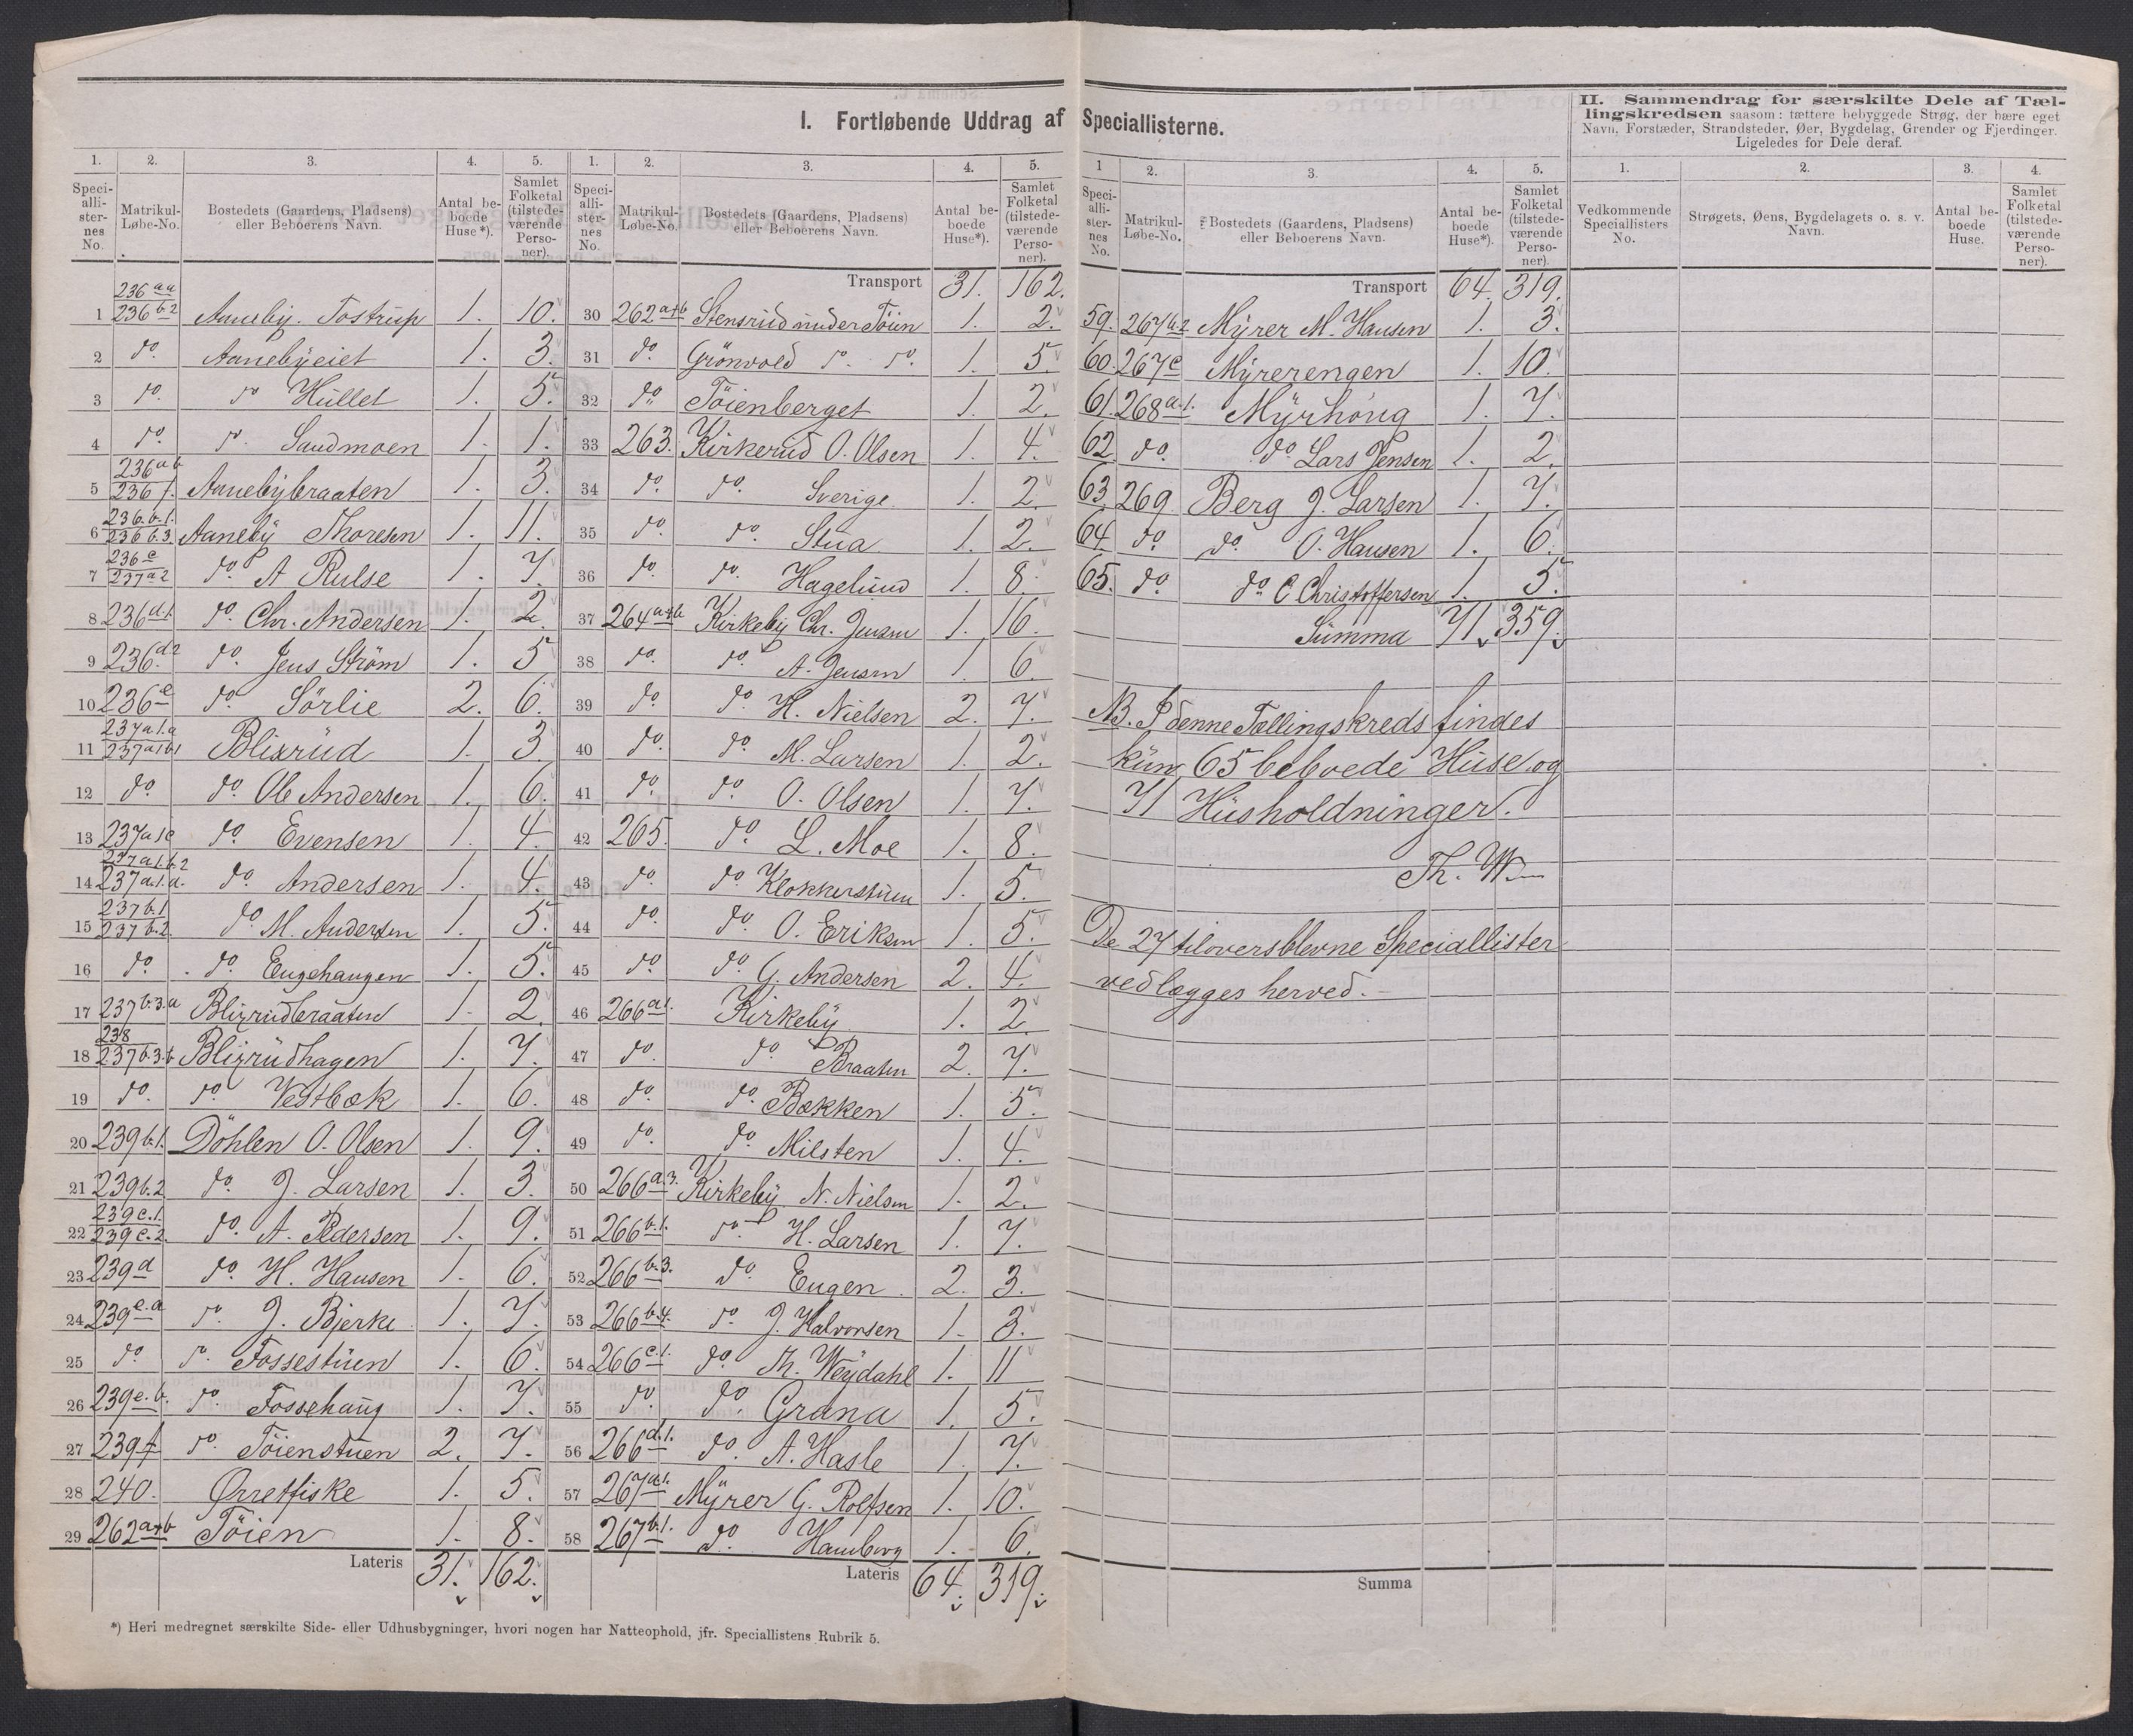 I. Fortløbende Uddrag af Speciallisterne.
II. Sammendrag for særskilte Dele af Tæl-
lingskredsen saasom: tættere bebyggede Strøg, der bære eget
Navn, Forstæder, Strandsteder, Øer, Bygdelag, Grender og Fjerdinger.
Ligeledes for Dele deraf.
1. 2. 3. 4. 5.
Speci-alli-ster-nes No. Matrikul-Løbe-No. Bostedets (Gaardens, Pladsens) eller Beboerens Navn. Antal be-boede Huse*). Samlet Folketal (tilstede-værende Perso-ner).
1 236 aa 236 b2 Aaneby. Tostrup 1. 10.
2 do Aanebyeiet 1. 3.
3 do. do Hullet 1. 5.
4 do. do. Sandmoen 1. 1.
5 236 ab 236 f. Aanebybraaten 1. 3.
6 236.b.1. 236 b.3. Aaneby Thoresen 1. 11.
7 236 c 237 a2 do. A Rulse 1. 7.
8 236 d.1. do. Chr. Andersen 1. 2.
9 236. d2 do. Jens Ström 1. 5
10 236 e do. Sörlie 2. 6.
11 237 a.1.a 237 a1b1 Blixrud 1. 3
12 do. do. Ole Andersen 1. 6.
13 237 a 1 c do. Evensen 1. 4.
14 237 a.1.b.2 237 a.1.d. do. Andersen 1. 4.
15 237 b.1 237 b.2. do. M. Andersen 1. 5.
16 do. do. Engehaugen 1. 5.
17 237 b.3.a Blixrudbraaten 1. 2.
18 238 237 b.3.b Blixrudhagen 1. 7.
19 do. do. Vestbæk 1. 6.
20 239 b.1. Döhlen O. Olsen 1. 9.
21 239 b.2 do. J. Larsen 1. 3.
22 239 c.1. 239 c.2. do. A. Pedersen 1. 9.
23 239 d do. H. Hansen 1. 6.
24 239 e.a do. J. Bjerke 1. 7.
25 do. do. Fossestuen 1. 6.
26 239 e.b. do. Fossehaug 1. 7.
27 239 f do. Töienstuen 2. 7.
28 240. Ørretfiske 1. 5.
29 262 a+b Töien 1. 8.
Lateris 31. 162.
1. 2. 3. 4. 5.
Speci-alli-ster-nes No. Matrikul-Løbe-No. Bostedets (Gaardens, Pladsens) eller Beboerens Navn. Antal be-boede Huse*). Samlet Folketal (tilstede-værende Perso-ner).
Transport 31. 162.
30 262 a+b Stensrud under Töien 1. 2.
31 do. Grönvold do. do. 1. 5.
32 do Töienberget 1. 2.
33 263. Kirkerud O. Olsen 1. 4.
34 do. do. Sverige 1. 2.
35 do. do. Stua 1. 2.
36 do. do. Hagelund 1. 8.
37 264 a+b Kirkeby Chr. Jensen 1. 16.
38 do. do. A. Jensen 1. 6.
39 do. do. H. Nielsen 2. 7.
40 do. do. M. Larsen 1. 2.
41 do. do. O. Olsen 1. 7.
42 265. do. L. Moe 1. 8.
43 do. do. Klokkerstuen 1. 5.
44 do. do. O. Eriksen 1. 5.
45 do. do. G. Andersen 2. 4.
46 266 a1. Kirkeby 1. 2.
47 do. do. Braaten 2. 7.
48 do. do. Bækken 1. 5.
49 do. do. Milsten 1. 4.
50 266 a.3. Kirkeby N. Nielsen 1. 2.
51 266 b.1. do. H. Larsen 1. 7.
52 266 b.3. do. Engen 2. 3.
53 266 b.4. do. J. Halvorsen 1. 3.
54 266 c.1. do. Th. Weydahl 1. 11
55 do. do. Grana 1. 5.
56 266 d.1. do. A. Hasle 1. 7.
57 267 a.1. Myrer G. Rolfsen 1. 10.
58 267 b.1. do. Hamborg 1. 6.
Lateris 64. 319.
*) Heri medregnet særskilte Side- eller Udhusbygninger, hvori nogen har Natteophold, jfr. Speciallistens Rubrik 5.
1 2. 3. 4. 5.
Speci-alli-ster-nes No. Matrikul-Løbe-No. Bostedets (Gaardens, Pladsens) eller Beboerens Navn. Antal be-boede Huse*). Samlet Folketal (tilstede-værende Perso-ner).
Transport 64. 319.
59. 267 b.2 Myrer M. Hansen 1. 3.
60. 267 c Myrerengen 1. 10.
61. 268 a.1. Myrhoug 1. 7.
62 do. do. Lars Jensen 1. 2.
63 269 Berg J. Larsen 1. 7.
64. do. do. O. Hansen 1. 6.
65. do do C Christoffersen 1. 5.
Summa 71 359.
NB. I denne Tællingskreds findes
kun 65 beboede Huse og
71 Husholdninger.
Th. W.
De 27 tiloversblevne Speciallister
vedlægges herved.
Summa
1. 2. 3. 4.
Vedkommende Speciallisters No. Strøgets, Øens, Bygdelagets o. s. v. Navn. Antal be-boede Huse. Samlet Folketal (tilstede-værende Perso-ner).